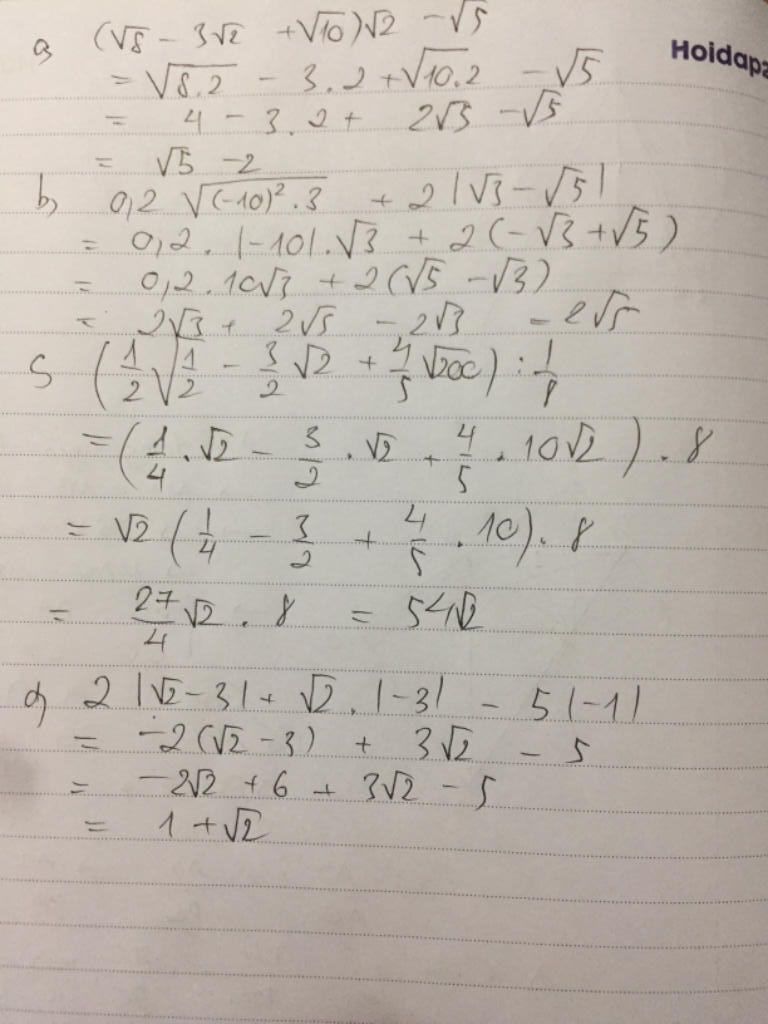 Hoidapa
a) (√8 - 3√2 + √10)√2 - √5
= √8.2 - 3.2 + √10.2 - √5
= 4 - 3.2 + 2√5 - √5
= √5 - 2
b) 0,2 √(-10)².3 + 2|√3 - √5|
= 0,2.|-10|.√3 + 2(-√3 + √5)
= 0,2.10√3 + 2(√5 - √3)
= 2√3 + 2√5 - 2√3 = 2√5
c) (1/2 √1/2 - 3/2 √2 + 4/5 √200) : 1/8
= (1/4 . √2 - 3/2 . √2 + 4/5 . 10√2) . 8
= √2 (1/4 - 3/2 + 4/5 . 10) . 8
= 27/4 √2 . 8 = 54√2
d) 2 |√2 - 3| + √2 . |-3| - 5 |-1|
= -2(√2 - 3) + 3√2 - 5
= -2√2 + 6 + 3√2 - 5
= 1 + √2